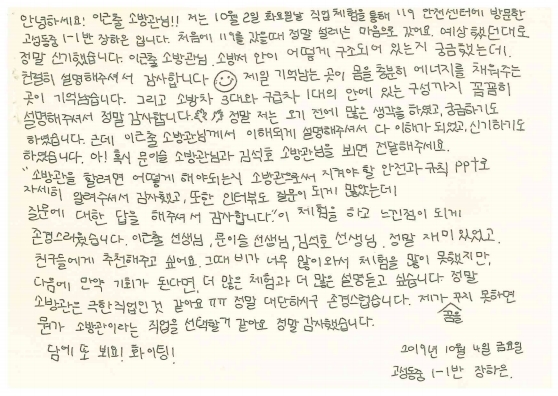 안녕하세요! 이은출 소방관님!! 저는 10월 2일 화요일날 직업체험을 통해 119 안전센터에 방문한
고성동중 1-1반 장하은 입니다. 처음에 119를 갔을때 정말 설레는 마음으로 갔어요. 예상했던대로
정말 신기했습니다. 이은출 소방관님. 소방서 안이 어떻게 구조되어 있는지 궁금했는데.
친절히 설명해주셔서 감사합니다 제일 기억남는 곳이 몸을 충분히 에너지를 채워주는
곳이 기억남습니다. 그리고 소방차 3대와 구급차 1대의 안에 있는 구성까지 꼼꼼히
설명해주셔서 정말 감사합니다. 정말 저는 오기 전에 많은 생각을 하였고, 궁금하기도
하였습니다. 근데 이은출 소방관님께서 이해되게 설명해주셔서 다 이해가 되었고, 신기하기도
하였습니다. 아! 혹시 문이슬 소방관님과 김석호 소방관님을 뵈면 전달해주세요.
"소방관을 할려면 어떻게 해야되는지 소방관으로써 지켜야 할 안전과 규칙 PPT로
자세히 알려주셔서 감사했고, 또한 인터뷰도 질문이 되게 많았는데
질문에 대한 답을 해주셔서 감사합니다." 이 체험을 하고 느낀점이 되게
존경스러웠습니다. 이은출 선생님, 문이슬 선생님, 김석호 선생님. 정말 재미 있었고.
친구들에게 추천해주고 싶어요. 그때 비가 너무 많이와서 체험을 많이 못했지만,
다음에 만약 기회가 된다면, 더 많은 체험과 더 많은 설명듣고 싶습니다. 정말
소방관은 극한직업인 것 같아요 ㅠㅠ 정말 대단하시구 존경스럽습니다. 제가 꿈을 꾸지 못하면
뭔가 소방관이라는 직업을 선택할거 같아요 정말 감사했습니다.
담에 또 뵈요! 화이팅!
2019년 10월 4일 금요일
고성동중 1-1반 장하은.